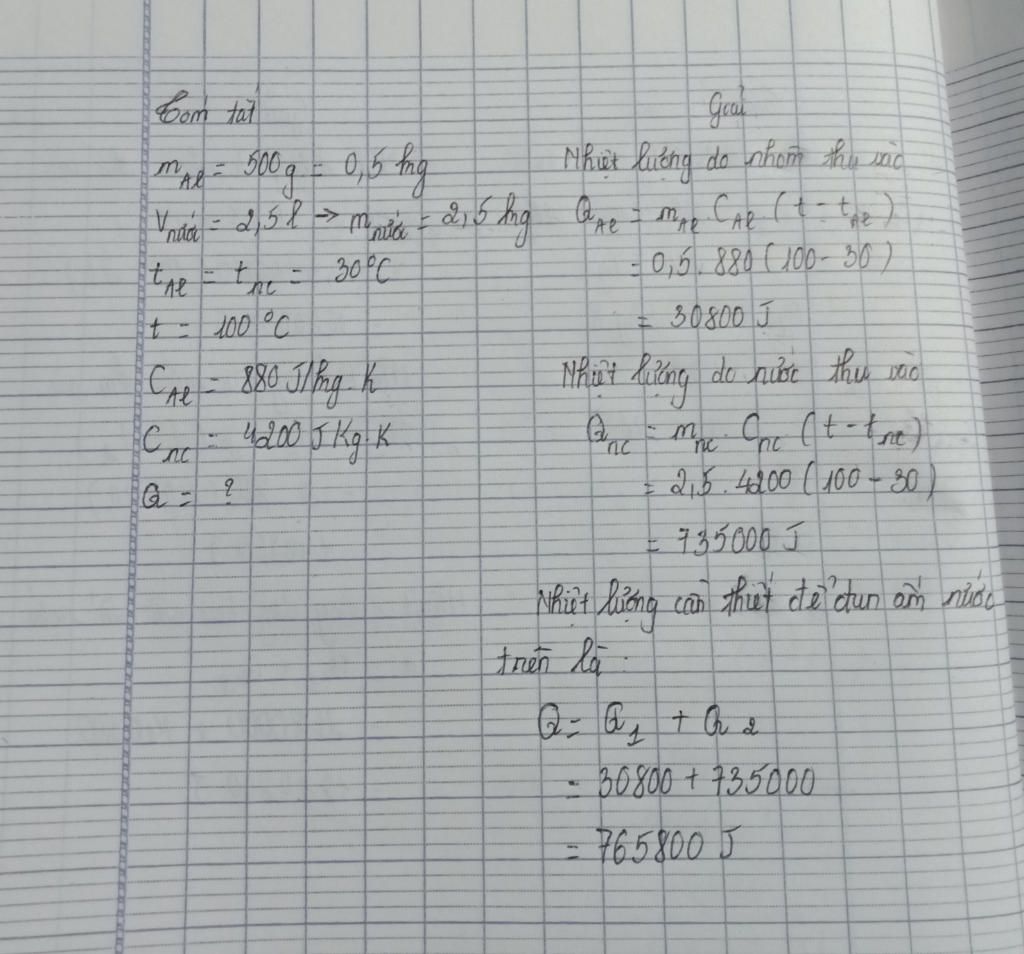 Tóm tắt
m_Al = 500g = 0,5 kg
V_nước = 2,5l → m_nước = 2,5 kg
t_Al = t_nc = 30°C
t = 100°C
C_Al = 880 J/kg.K
C_nc = 4200 J Kg.K
Q = ?
Giải
Nhiệt lượng do nhôm thu vào
Q_Al = m_Al . C_Al . (t - t_Al)
= 0,5 . 880 (100 - 30)
= 30800 J
Nhiệt lượng do nước thu vào
Q_nc = m_nc . C_nc (t - t_nc)
= 2,5 . 4200 (100 - 30)
= 735000 J
Nhiệt lượng cần thiết để đun ấm nước
trên là :
Q = Q_1 + Q_2
= 30800 + 735000
= 765800 J